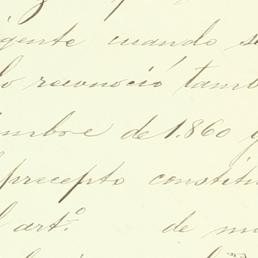 gente cuando se
lo reconoció tamb
mbre de 1.860 y
precepto constitu
l artº. de